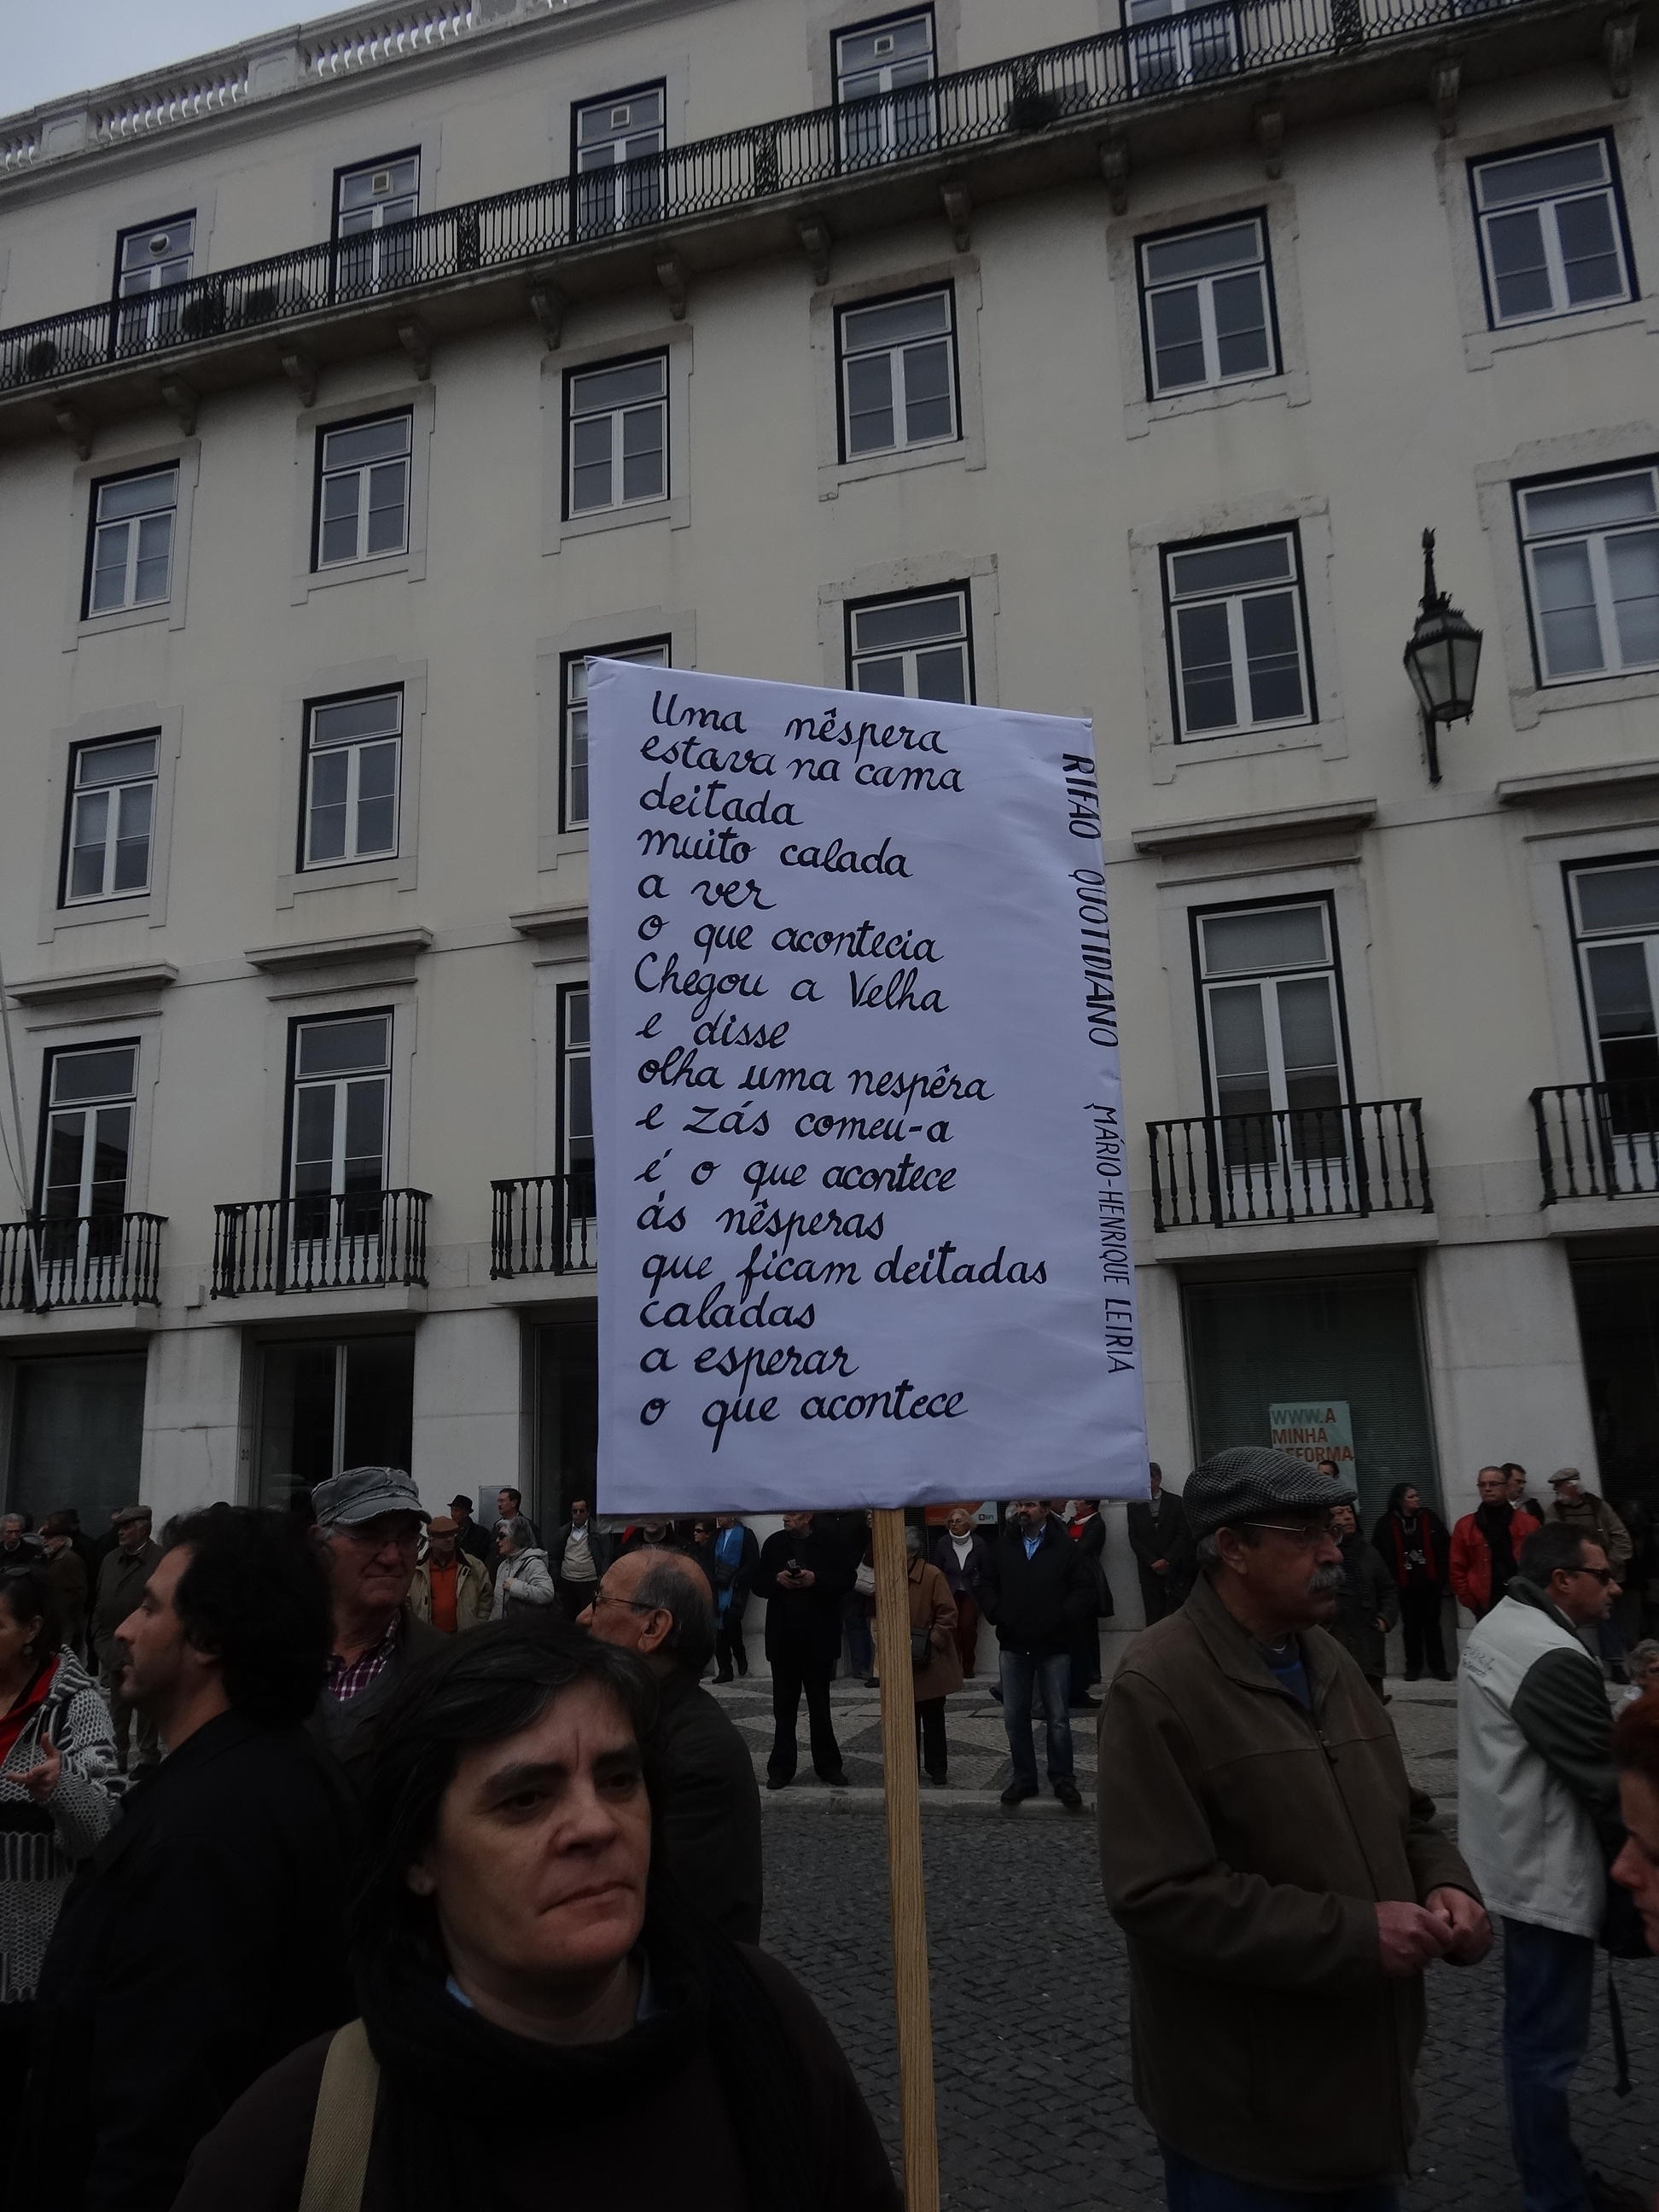 Uma nêspera
estava na cama
deitada
muito calada
a ver
o que acontecia
Chegou a Velha
e disse
olha uma nespêra
e zás comeu-a
é o que acontece
ás nêsperas
que ficam deitadas
caladas
a esperar
o que acontece
RIFÃO QUOTIDIANO
MÁRIO-HENRIQUE LEIRIA
WWW.A
MINHA
REFORMA